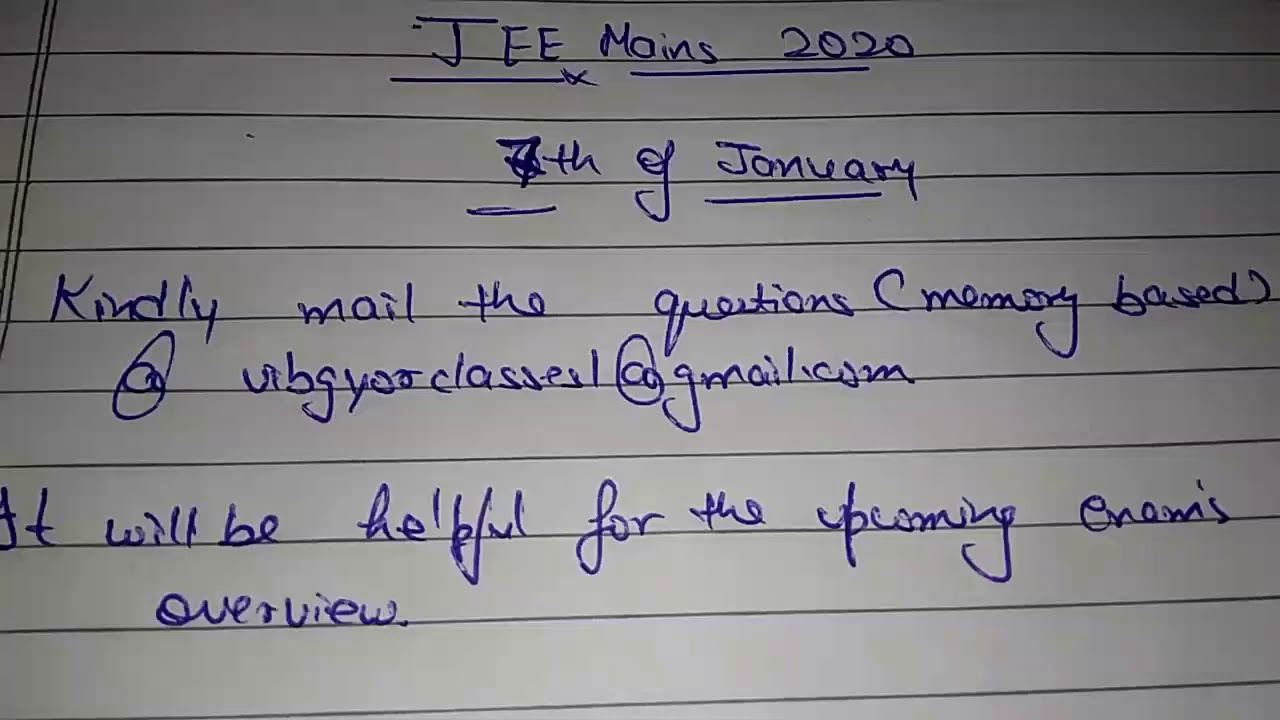 JEE Mains 2020
7th of January
Kindly mail the questions (memory based)
@ vibgyorclasses1@gmail.com
It will be helpful for the upcoming exam's
overview.